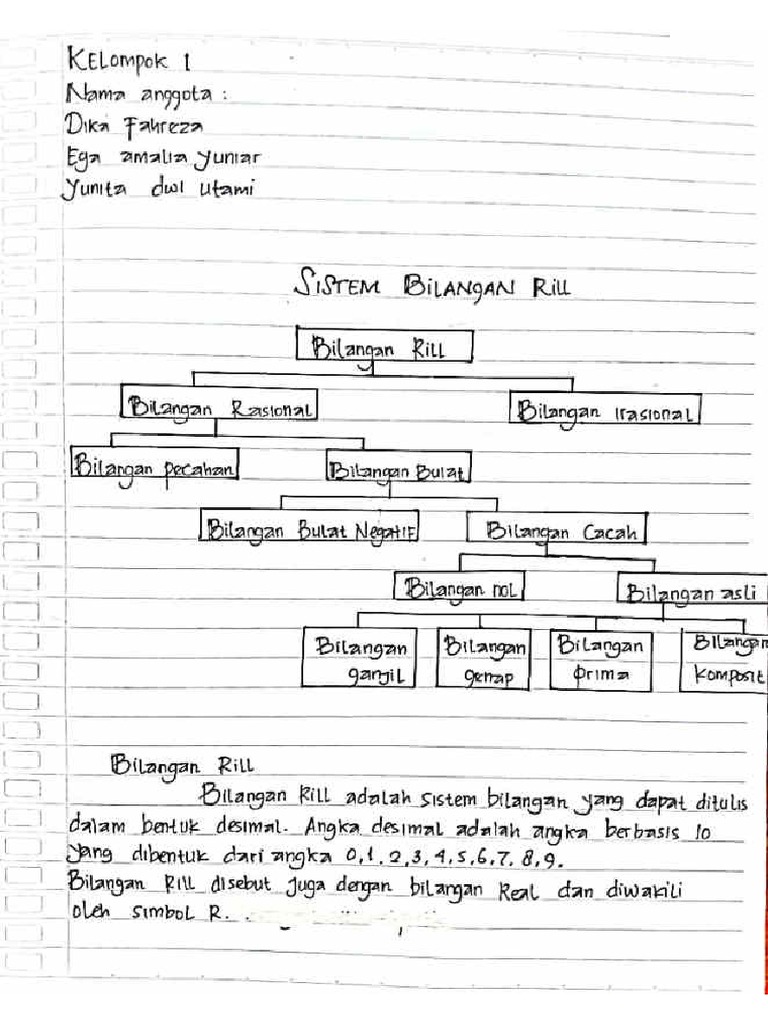 KELompok 1
Nama anggota :
Dika Fahreza
Ega amalia Yuniar
Yunita dwi utami
SISTEM BILANGAN RiLL
Bilangan Rill
Bilangan Rasional
Bilangan Irasional
Bilangan pecahan
Bilangan Bulat
Bilangan Bulat Negatif
Bilangan Cacah
Bilangan nol
Bilangan asli
Bilangan ganjil
Bilangan genap
Bilangan prima
Bilangan komposit
Bilangan Rill
Bilangan Rill adalah sistem bilangan yang dapat ditulis
dalam bentuk desimal. Angka desimal adalah angka berbasis 10
yang dibentuk dari angka 0,1,2,3,4,5,6,7,8,9.
Bilangan Rill disebut juga dengan bilangan Real dan diwakili
oleh simbol R.